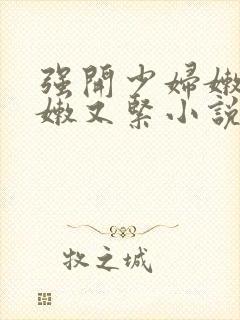 强開少婦嫩
嫩又緊小說
牧之城